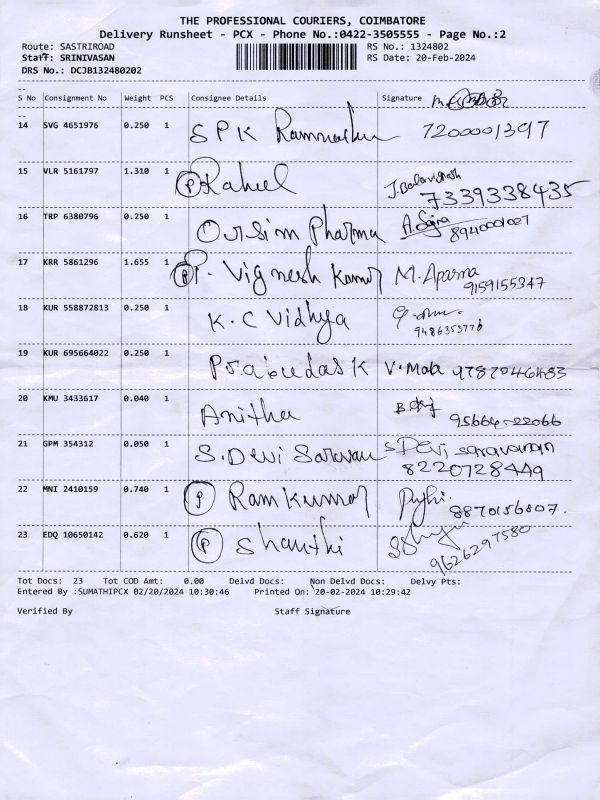 THE PROFESSIONAL COURIERS, COIMBATORE
Delivery Runsheet - PCX - Phone No.:0422-3505555 - Page No.:2
Route: SASTRIROAD RS No.: 1324802
Staff: SRINIVASAN RS Date: 20-Feb-2024
DRS No.: DCJB132480202
--
S No Consignment No Weight PCS Consignee Details Signature
--
14 SVG 4651976 0.250 1 SPK 7200001397
15 VLR 5161797 1.310 1 P Rahul J. Balavignesh 7339338435
16 TRP 6380796 0.250 1 Orsim Pharma 8940001007
17 KRR 5861296 1.655 1 P P. Vignesh Kumar M. Aparna 9159155347
18 KUR 558872813 0.250 1 K.C Vidhya
19 KUR 695664022 0.250 1 Prabudas K V. Mala
20 KMU 3433617 0.040 1 Anitha
21 GPM 354312 0.050 1 S. Devi Saravan S Devi saravanan 8220728449
22 MNI 2410159 0.740 1 P Ramkumar 8870156807.
23 EDQ 10650142 0.620 1 P Shanthi 9626297580
Tot Docs: 23 Tot COD Amt: 0.00 Delvd Docs: Non Delvd Docs: Delvy Pts:
Entered By :SUMATHIPCX 02/20/2024 10:30:46 Printed On: 20-02-2024 10:29:42
Verified By Staff Signature